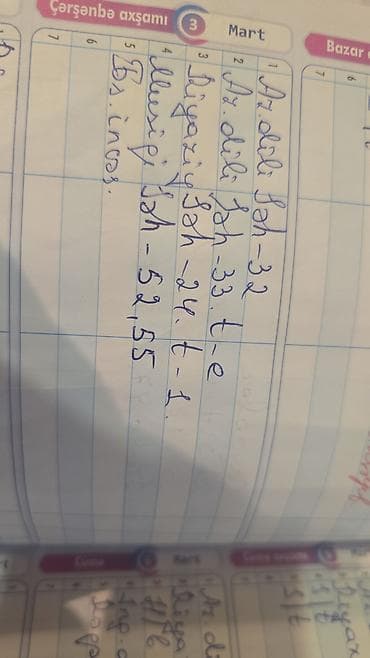 Mart
3
Çərşənbə axşamı
Bazar
6
7
1 Az. dili Səh-32
2 Az. dili Səh-33. t-e
3 Riyaziy Səh-24. t-1.
4 Musiqi Səh-52,55
5 Təs. incəs.
6
7